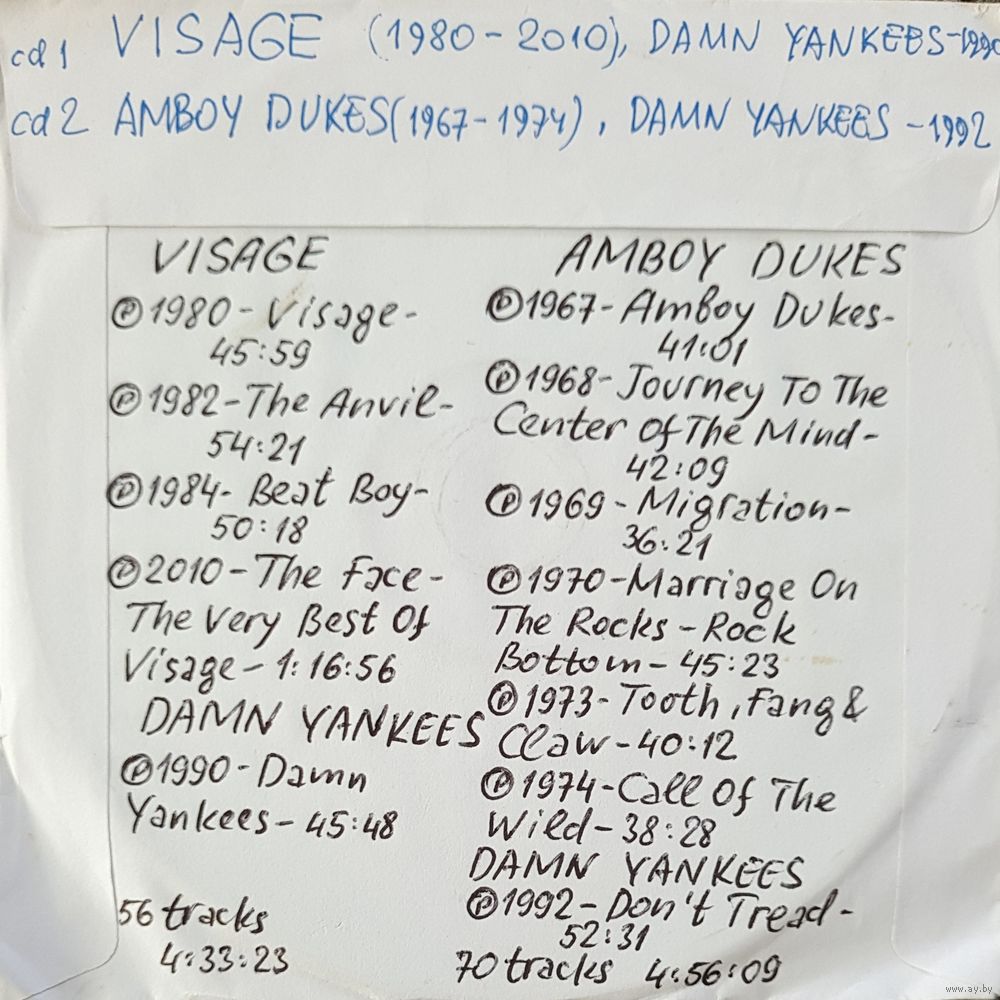 cd 1 VISAGE (1980-2010), DAMN YANKEES-1990
cd 2 AMBOY DUKES(1967-1974), DAMN YANKEES-1992
VISAGE
℗1980-Visage-
45:59
℗1982-The Anvil-
54:21
℗1984-Beat Boy-
50:18
℗2010-The Face-
The Very Best Of
Visage-1:16:56
DAMN YANKEES
℗1990-Damn
Yankees-45:48
56 tracks
4:33:23
AMBOY DUKES
℗1967-Amboy Dukes-
41:01
℗1968-Journey To The
Center Of The Mind-
42:09
℗1969-Migration-
36:21
℗1970-Marriage On
The Rocks-Rock
Bottom-45:23
℗1973-Tooth, Fang &
Claw-40:12
℗1974-Call Of The
Wild-38:28
DAMN YANKEES
℗1992-Don't Tread-
52:31
70 tracks 4:56:09
www.ay.by